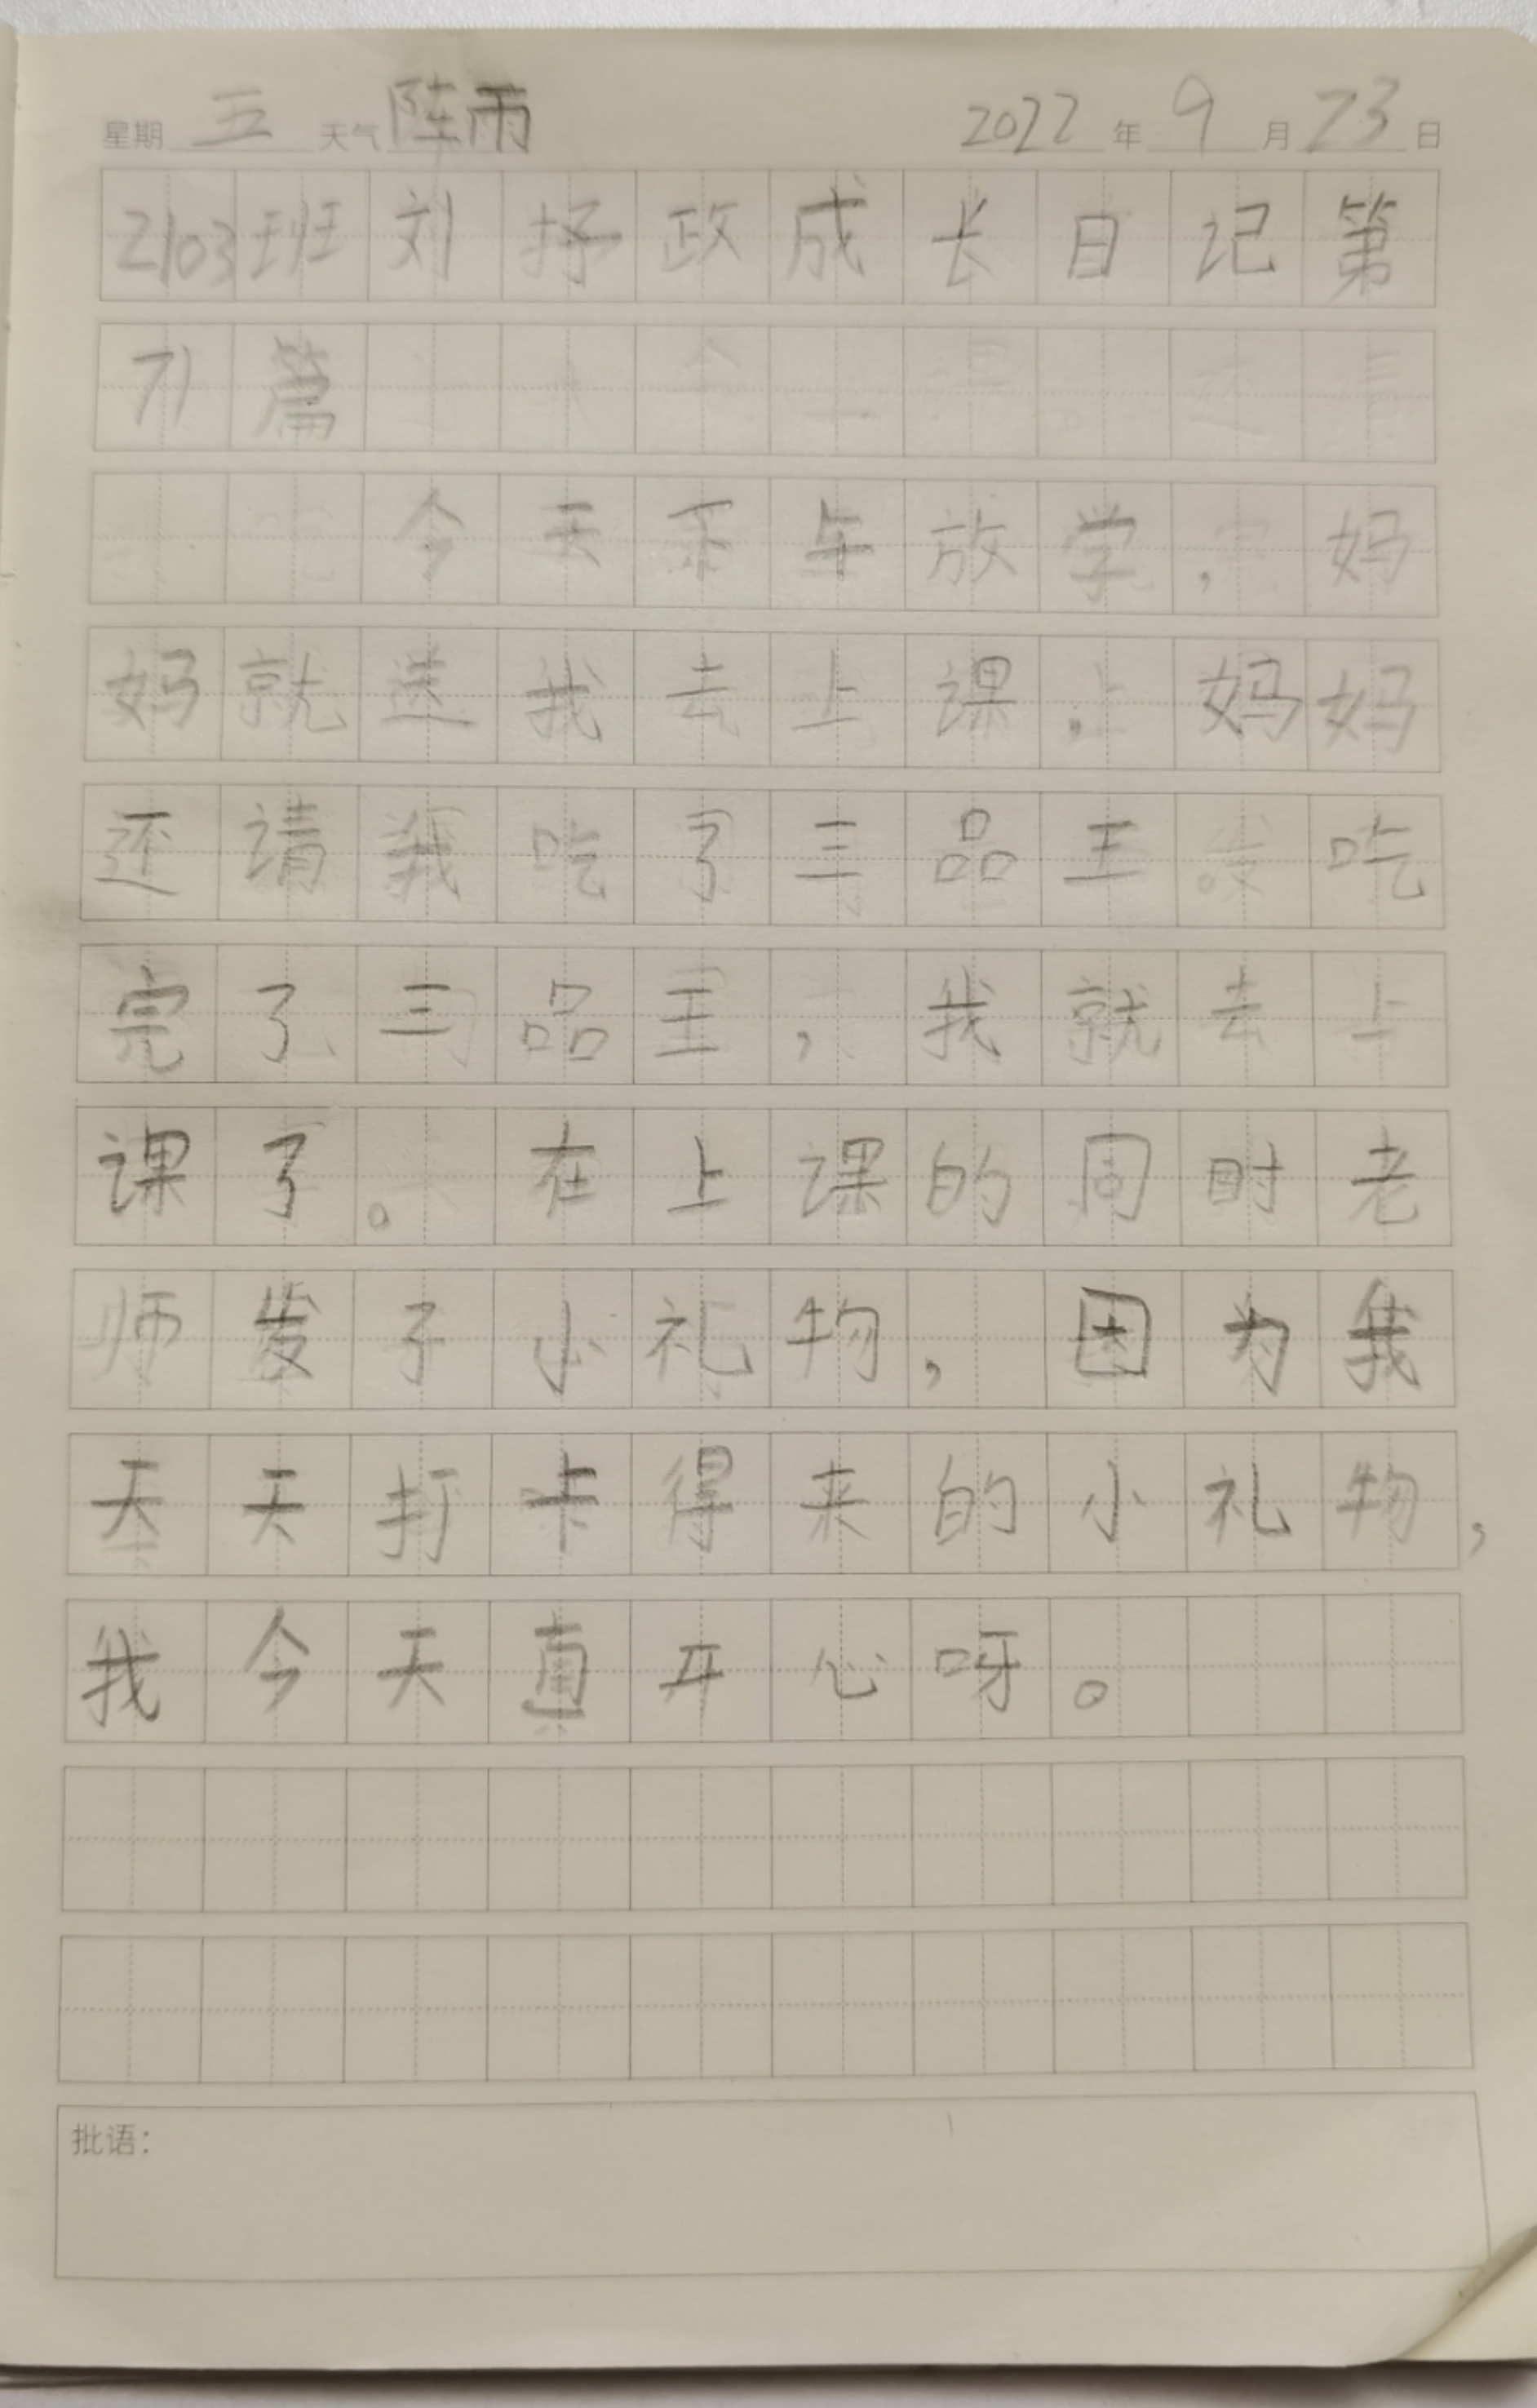 星期 五 天气 阵雨 2022 年 9 月 23 日
2103班刘抒政成长日记第
71篇
今天下午放学，妈
妈就送我去上课，妈妈
还请我吃了三品王。吃
完了三品王，我就去上
课了。在上课的同时老
师发了小礼物，因为我
天天打卡得来的小礼物，
我今天真开心呀。
批语：